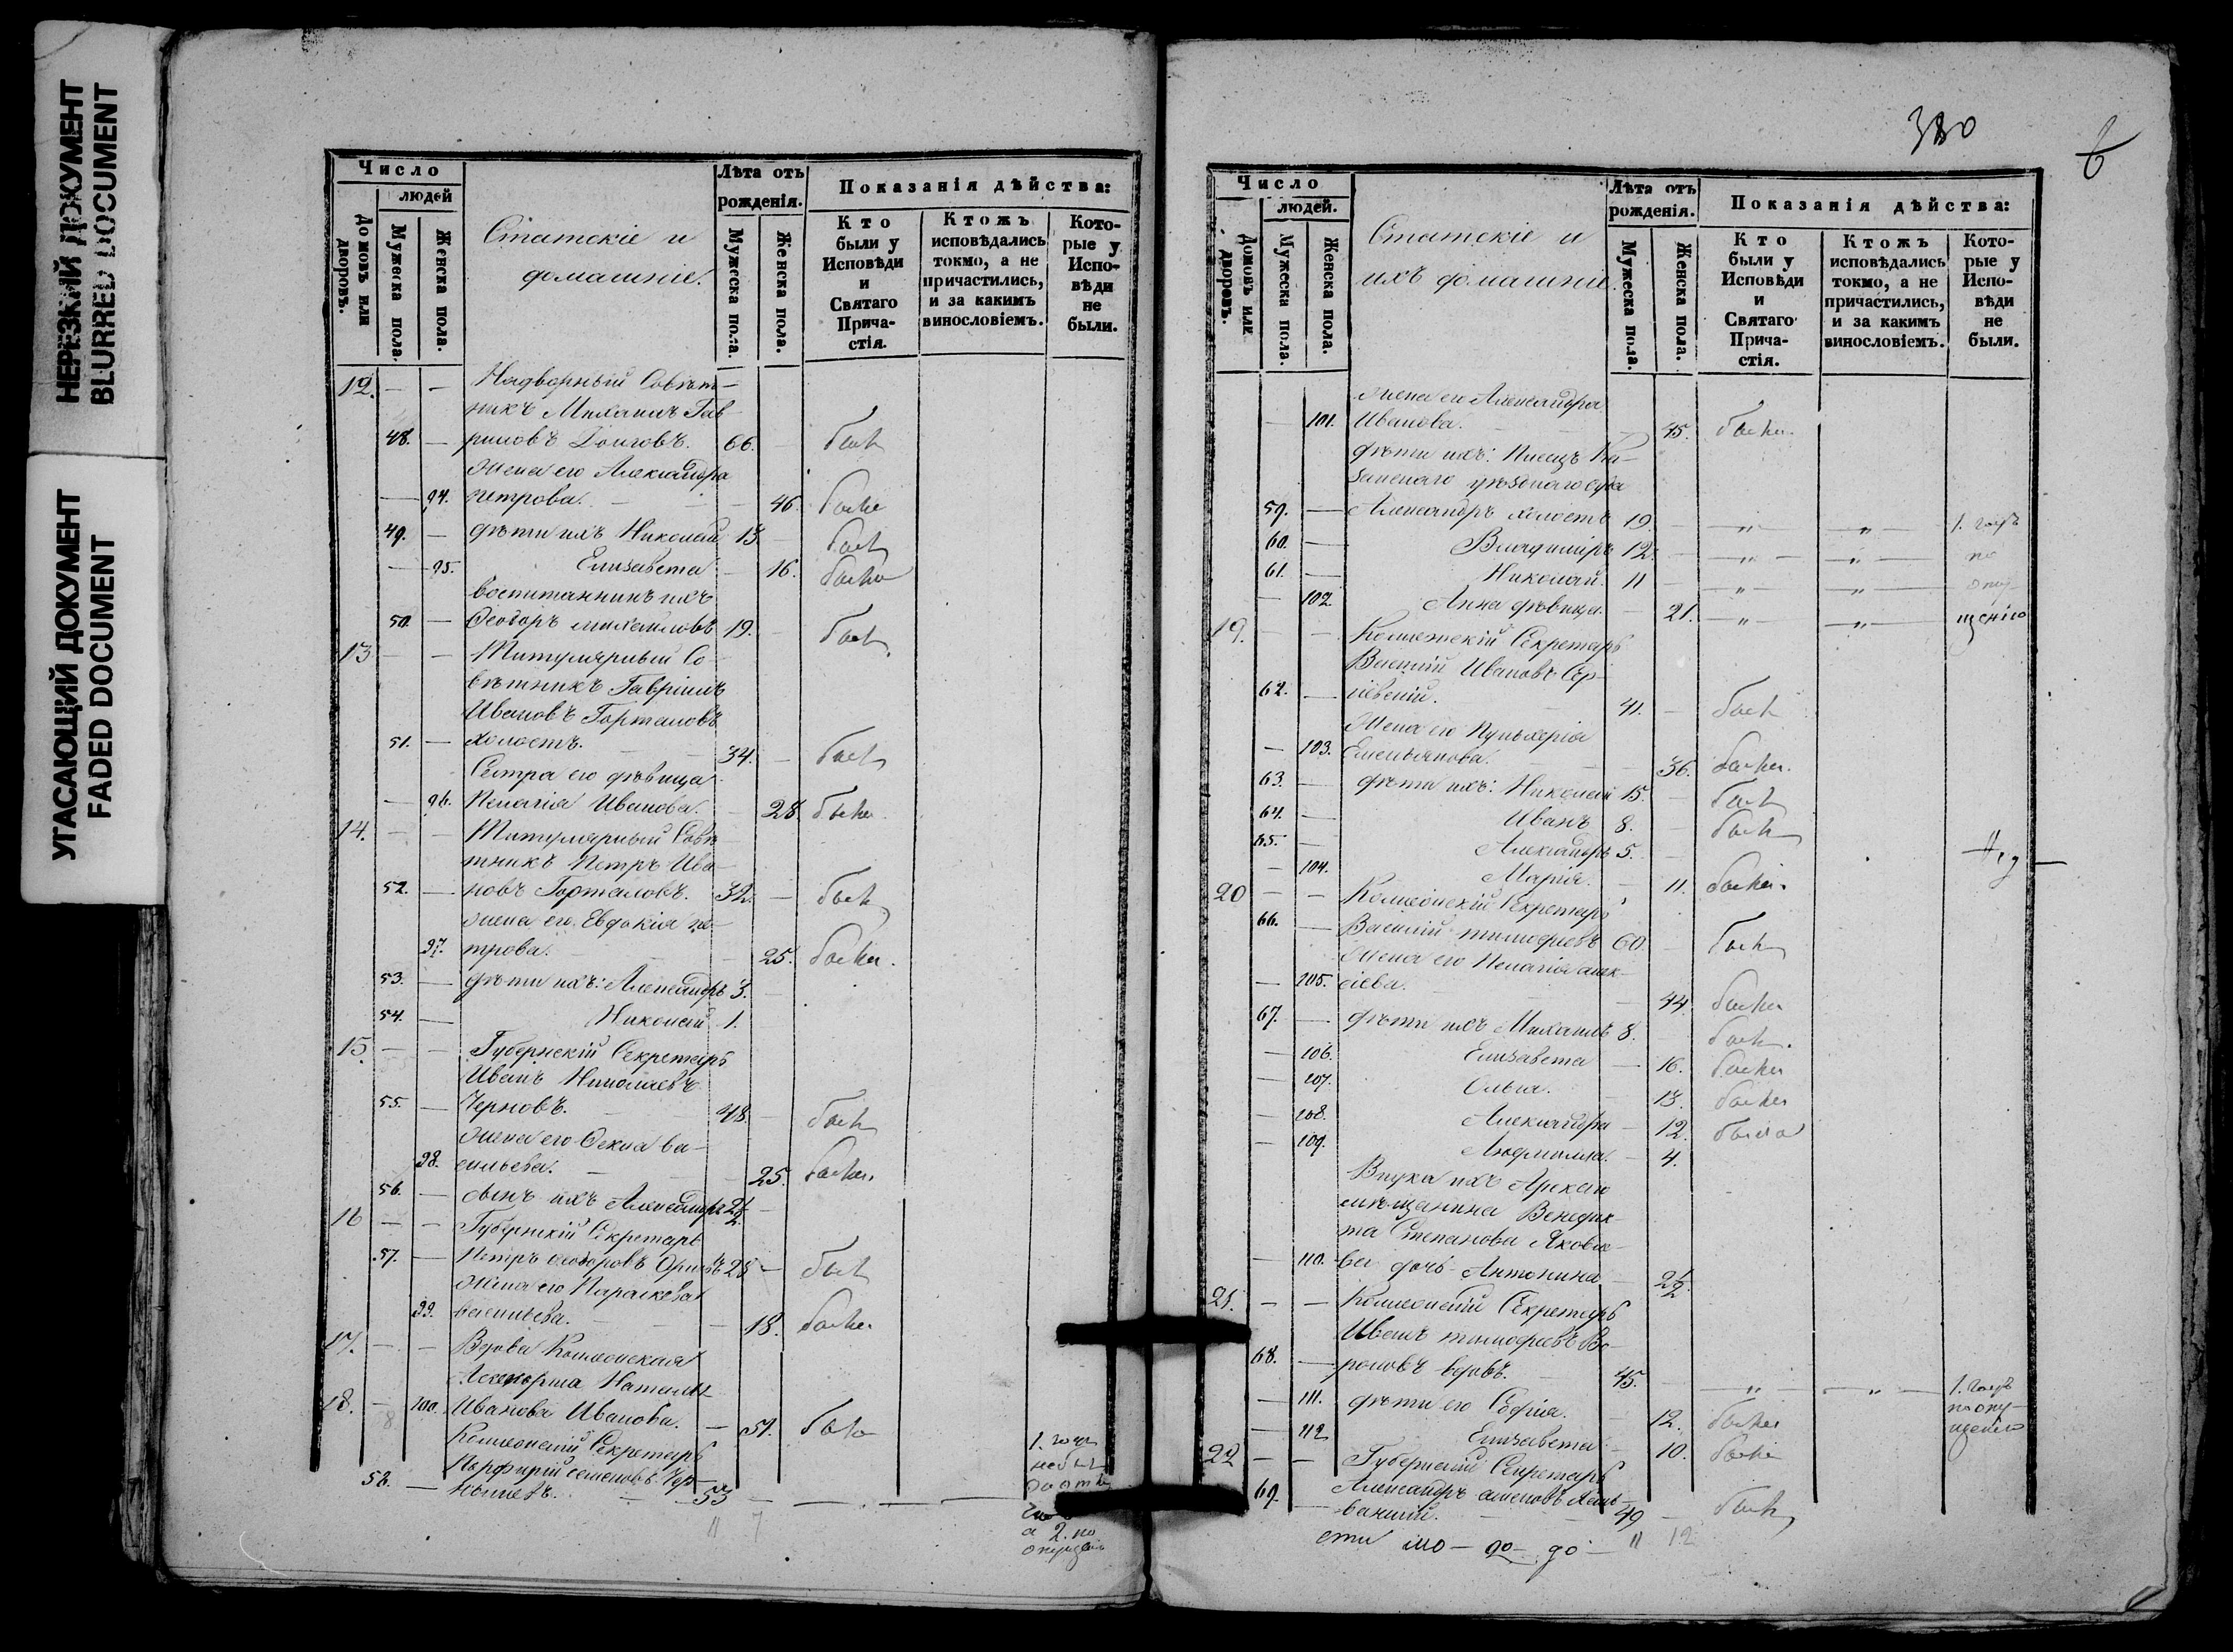 НЕРЕЗКИЙ ДОКУМЕНТ
BLURRED DOCUMENT
УГАСАЮЩИЙ ДОКУМЕНТ
FADED DOCUMENT
Число
людей
Домовъ или дворовъ.
Мужеска пола.
Женска пола.
Статскіе и
домашніе.
Лѣта отъ
рожденія.
Мужеска пола.
Женска пола.
Показанія дѣйства:
Кто
были у
Исповѣди
и
Святаго
Прича-
стія.
Ктожъ
исповѣдались
токмо, а не
причастились,
и за какимъ
винословіемъ.
Кото-
рые у
Испо-
вѣди
не
были.
12. — — Надворный Совѣт-
никъ Михаилъ Гав
48. — риловъ 66. — былъ
жена его Александра
— 94. петрова. — 46. была
49. — дѣти ихъ Николай 13 — былъ
— 95. Елизавета — 16. была
воспитанникъ ихъ
50. — Ѳеодоръ михайловъ 19. — былъ
13 — — Титулярный Со
вѣтникъ Гавріилъ
Ивановъ Горталовъ
51. — холостъ. 34. — былъ
Сестра его дѣвица
— 96. Пелагія Иванова. — 28 была
14. — — Титулярный Совѣ
тникъ Петръ Ива-
52. — новъ Горталовъ. 32. — былъ
жена его Евдокія пе-
97. трова. — 25. была.
53. — дѣти ихъ: Александръ 3. —
54. — Николай 1.
15. — — Губернскій Секретарь
Иванъ Николаевъ
55. — Черновъ. 48. — былъ
жена его Ѳекла ва-
98. сильева. — 25. была.
56. — сынъ ихъ Александръ 2 1/2 —
16 — — Губернскій Секретарь
57. — Петръ Ѳеодоровъ 28 — былъ
Жена его Параскева
99. васильева. — 18. была
17. — — Вдова Коллежская
Ассесорша Наталья
18. — 100. Иванова Иванова. — 51. была
Коллежскій Секретарь
Порфирій семеновъ Чер-
58. — 53 —
1. годъ
а 2. по
опущенію
11 7
380
6
Число
людей.
Домовъ или дворовъ.
Мужеска пола.
Женска пола.
Статскіе и
ихъ домашніе.
Лѣта отъ
рожденія.
Мужеска пола.
Женска пола.
Показанія дѣйства:
Кто
были у
Исповѣди
и
Святаго
Прича-
стія.
Ктожъ
исповѣдались
токмо, а не
причастились,
и за какимъ
винословіемъ.
Кото-
рые у
Испо-
вѣди
не
были.
жена его Александра
— 101. Иванова. — 45. была.
дѣти ихъ: Писецъ Ка-
занскаго уѣзднаго суда
59. — Александръ холостъ 19. — „ — „ — 1. годъ
60. — Владиміръ 12. — „ — „ — по
61. — Николай. 11 — „ — „ — опу
— 102. Анна дѣвица. — 21. „ — „ — щенію
19. — — Коллежскій Секретарь
Василій Ивановъ Сер-
62. — гіевскій. 41. — былъ
Жена его Пульхерія
— 103. Емельянова. — 36. была.
63. — дѣти ихъ: Николай 15. — былъ
64. — Иванъ 8. — былъ
65. — Александръ 5. —
— 104. Марія. — 11. была.
20 — — Коллежскій Секретарь
66. — Василій тимофеевъ 60 — былъ
Жена его Пелагія алек-
— 105. сіева. — 44. была
67. — дѣти ихъ Михаилъ 8. — былъ.
— 106. Елизавета — 16. была
— 107. Ольга. — 13. была
— 108. Александра — 12. была
— 109. Людмилла. — 4.
Внука ихъ
мѣщанина Венедик-
та Степанова Яковле-
— 110. ва дочь Антонина — 2 1/2
21. — — Коллежскій Секретарь
Иванъ тимофеевъ Во-
68. — роновъ вдовъ. 45. — „ — „ — 1. годъ
по опу-
щенію
— 111. дѣти его Софія. — 12. была
— 112 Елизавета — 10. была
22 — — Губернскій Секретарь
69. — Александръ
49 — былъ
11 12